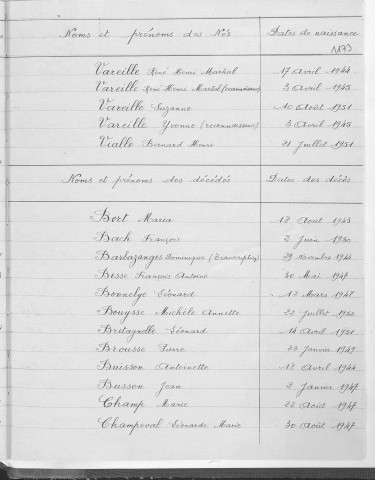 Noms et prénoms des Nés Dates de naissance
1173
Vareille René Henri Martial 17 Avril 1944
Vareille René Henri Martial (reconnaissance) 3 Avril 1945
Vareille Suzanne 10 Août 1951
Vareille Yvonne (reconnaissance) 3 Avril 1945
Vialle Bernard Henri 21 Juillet 1951
Noms et prénoms des décédés Dates des décès
Bort Maria 18 Août 1943
Bach François 2 Juin 1950
Barbazanges Dominique (Transcription) 29 Novembre 1944
Besse François Antoine 30 Mai 1947
Bonnelye Léonard 12 Mars 1947
Bouysse Michèle Annette 22 Juillet 1950
Bretagnolle Léonard 14 Avril 1951
Brousse Pierre Janvier 1949
Buisson Antoinette 18 Avril 1944
Busson Jean 2 Janvier 1947
Champ Marie 22 Août 1947
Champeval Léonarde Marie 30 Août 1947